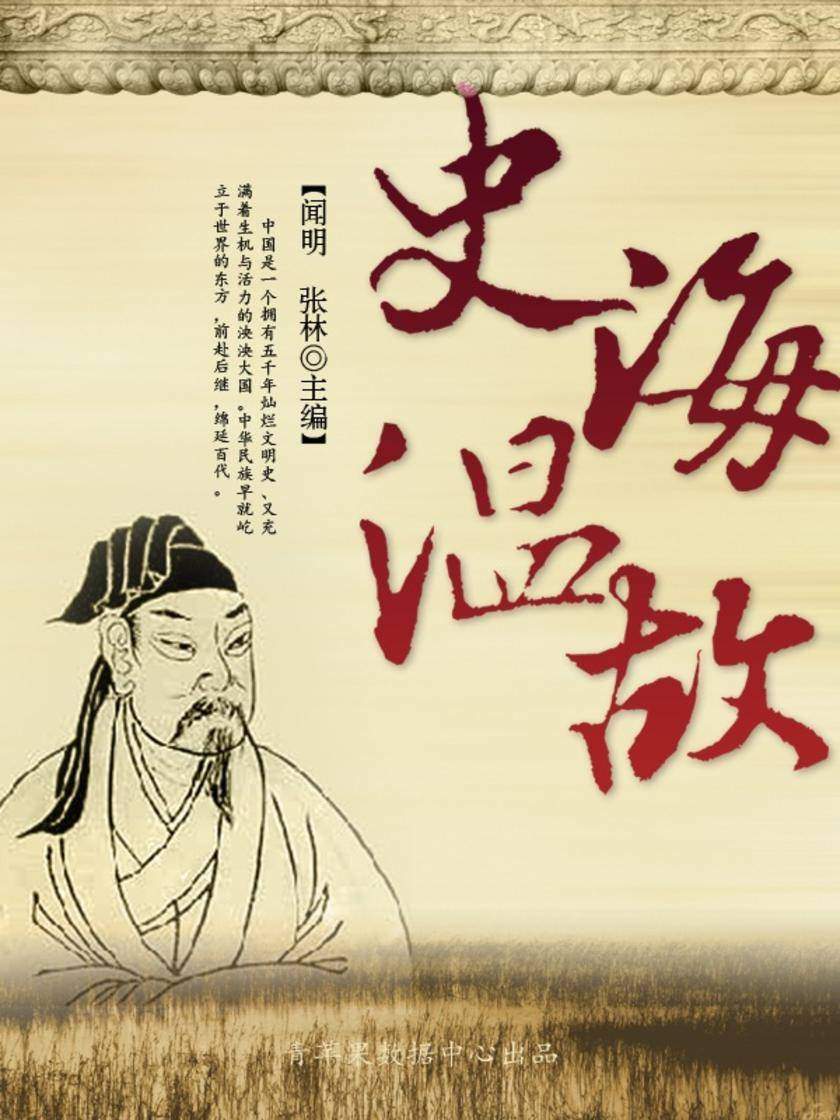 史海
温故
【闻明 张林◎主编】
中国是一个拥有五千年灿烂文明史、又充
满着生机与活力的泱泱大国。中华民族早就屹
立于世界的东方，前赴后继，绵延百代。
青苹果数据中心出品